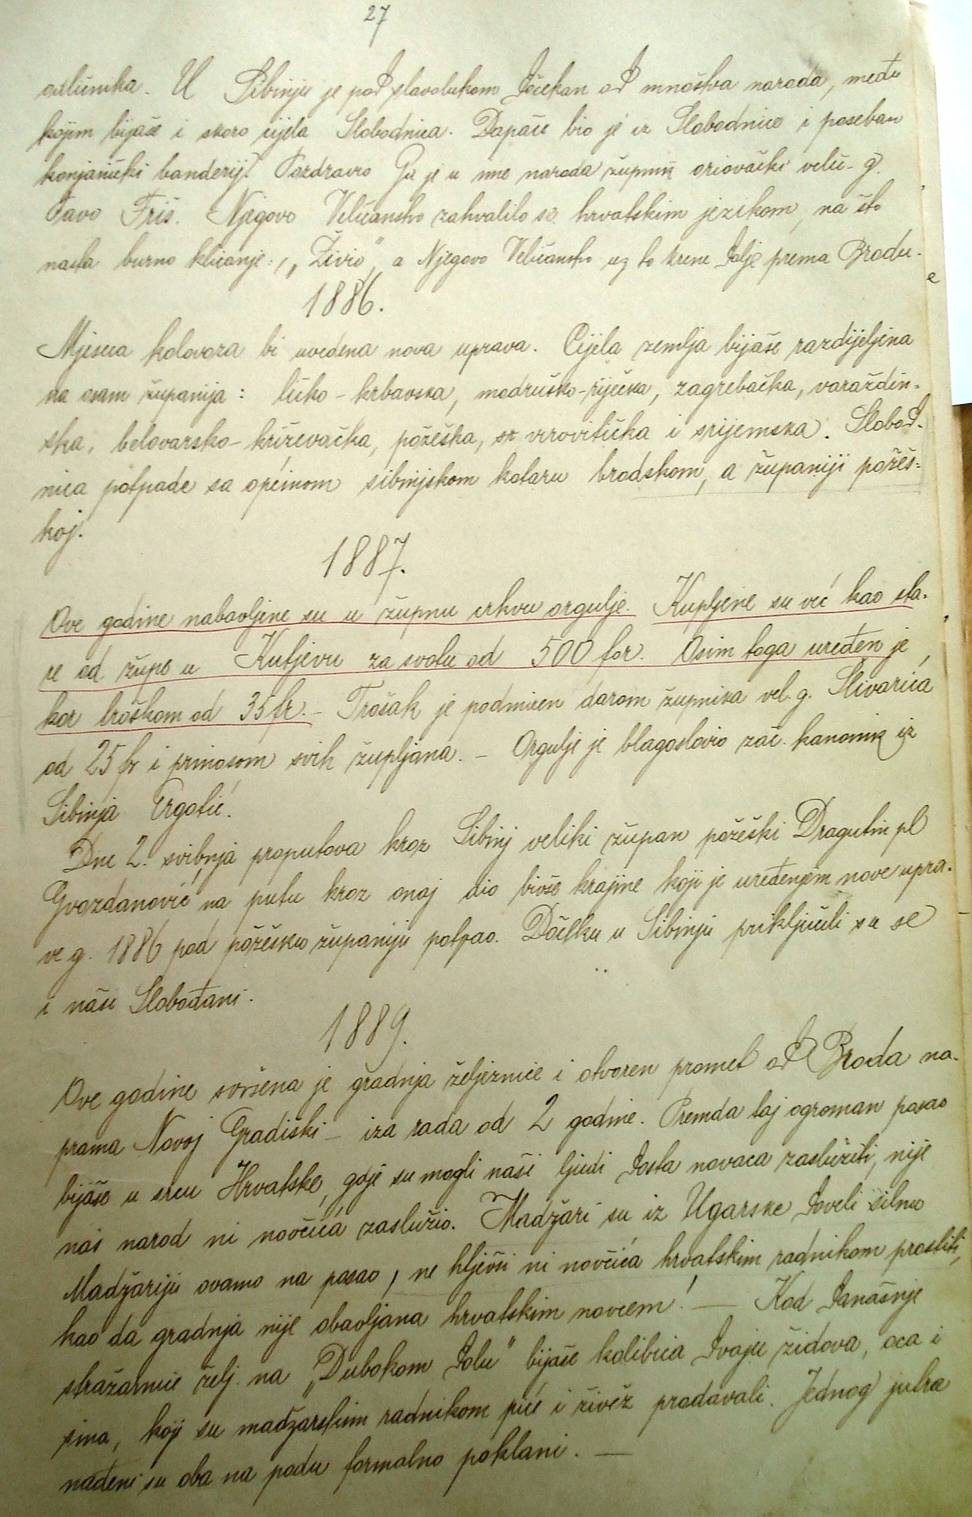 27
odličnika. U Sibinju je pod slavolukom dočekan od mnoštva naroda, među
kojim bijaše i skoro cijela Slobodnica. Dapače bio je iz Slobodnice i poseban
konjanički banderij. Pozdravio Ga je u ime naroda župnik oriovački velič. g.
Pavo Friš. Njegovo Veličanstvo zahvalilo se hrvatskim jezikom, na što
nasta burno klicanje: „Živio", a Njegovo Veličanstvo uz to krene dalje prema Brodu.
1886.
Mjeseca kolovoza bi uvedena nova uprava. Cijela zemlja bijaše razdijeljena
na osam županija: ličko-krbavska, modruško-riječka, zagrebačka, varaždin-
ska, belovarsko-križevačka, požeška, virovitička i srijemska. Slobod-
nica potpade sa općinom sibinjskom kotaru brodskom, a županiji požeš-
koj.
1887.
Ove godine nabavljene su u župnu crkvu orgulje. Kupljene su već kao sta-
re od župe u Kutjevu za svotu od 500 for. Osim toga uređen je
kor troškom od 35 fr. – Trošak je podmiren darom župnika vel. g. Slivarića
od 25 fr i prinosom svih župljana. – Orgulje je blagoslovio zač. kanonik iz
Sibinja Ergotić.
Dne 2. svibnja proputova kroz Sibinj veliki župan požeški Dragutin pl
Gvozdanović na putu kroz onaj dio bivše krajine koji je uređenjem nove upra-
ve g. 1886 pod požešku županiju potpao. Dočeku u Sibinju priključili su se
i naši Slobođani.
1889.
Ove godine svršena je gradnja željeznice i otvoren promet od Broda na-
prama Novoj Gradiški – iza rada od 2 godine. Premda taj ogroman posao
bijaše u srcu Hrvatske, gdje su mogli naši ljudi dosta novaca zaslužiti, nije
naš narod ni novčića zaslužio. Madžari su iz Ugarske doveli silnu
Madžariju ovamo na posao, ne htjevši ni novčića hrvatskim radnikom prostiti,
kao da gradnja nije obavljana hrvatskim novcem! — Kod današnje
stražarnice želj. na „Dubokom dolu" bijaše kolibica dvaju židova, oca i
sina, koji su madžarskim radnikom piće i živež prodavali. Jednog jutra
nađeni su oba na podu formalno poklani. —